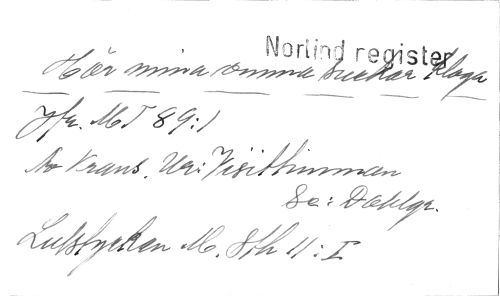 Norlind register
Hör mina ömma suckar klaga
Jfr. MT 89:1
Av Kraus. Ur: Visittimman
Se: Dahlgr.
Lutstycken M. 8th 11: I